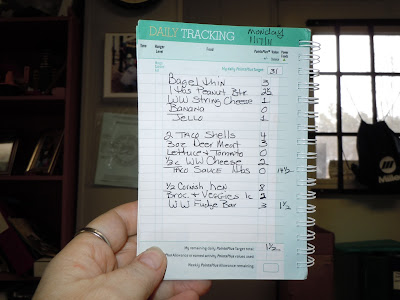 DAILY TRACKING
Monday
1/17/11
Time
Hunger Level
Food
PointsPlus Value
My daily PointsPlus Target
31
Bagel thin 3
1 tbs Peanut Btr 2.5
WW String Cheese 1
Banana 0
Jello 1
2 Taco Shells 4
3oz Deer Meat 3
Lettuce + Tomato 0
1/2 c WW Cheese 2
Taco Sauce 1tbs 0 14 1/2
1/2 Cornish hen 8
Broc. + Veggies 1c 2
WW Fudge Bar 3 1 1/2
My remaining daily PointsPlus Target total:
1 1/2
Weekly PointsPlus Allowance remaining: